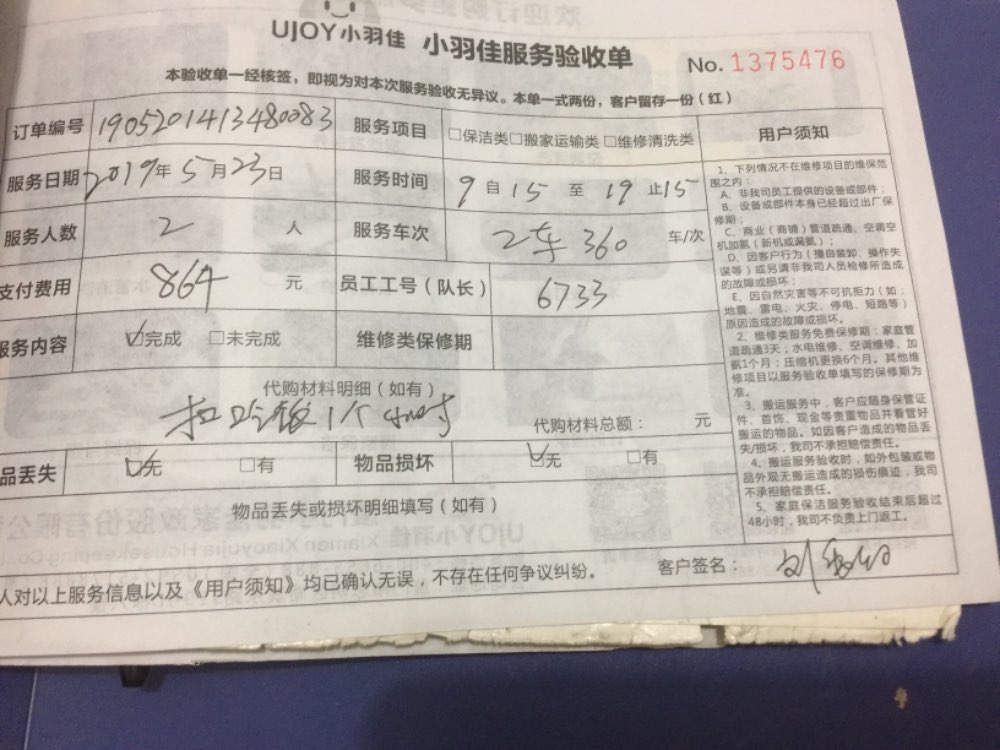 UJOY小羽佳 小羽佳服务验收单 No. 1375476
本验收单一经核签，即视为对本次服务验收无异议。本单一式两份，客户留存一份（红）
订单编号 1905201413480083 服务项目 □保洁类□搬家运输类□维修清洗类
服务日期 2019年5月23日 服务时间 9自15至19止15
服务人数 2 人 服务车次 2车360 车/次
支付费用 864 元 员工工号（队长） 6733
服务内容 ☑完成 □未完成 维修类保修期
代购材料明细（如有）
1个小时 代购材料总额： 元
品丢失 ☑无 □有 物品损坏 ☑无 □有
物品丢失或损坏明细填写（如有）
人对以上服务信息以及《用户须知》均已确认无误，不存在任何争议纠纷。 客户签名： 刘
用户须知
1、下列情况不在维修项目的维保范
围之内：
A、非我司员工提供的设备或部件；
B、设备或部件本身已经超过出厂保
修期；
C、商业（商铺）管道疏通、空调空
机加氨（新机或漏氨）；
D、因客户行为（擅自装卸、操作失
误等）或另请非我司人员检修所造成
的故障或损坏；
E、因自然灾害等不可抗拒力（如：
地震、雷电、火灾、停电、短路等）
原因造成的故障或损坏。
2、维修类服务免费保修期：家庭管
道疏通3天；水电维修、空调维修、加
氨1个月；压缩机更换6个月。其他维
修项目以服务验收单填写的保修期为
准。
3、搬运服务中，客户应随身保管证
件、首饰、现金等贵重物品并看管好
搬运的物品。如因客户造成的物品丢
失/损坏，我司不承担赔偿责任。
4、搬运服务验收时，如外包装或物
品外观无搬运造成的损伤痕迹，我司
不承担赔偿责任。
5、家庭保洁服务验收结束后超过
48小时，我司不负责上门返工。